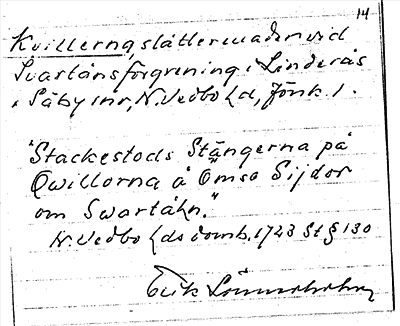 14
Kvillerna, slåttermader vid
Svartåns förgrening i Linderås
o. Säby snr, N. Vedbo hd, Jönk. l.
"Stackestods Stängerna på
Qwillorna å ömse Sijdor
om Swartåhn."
N. Vedbo hds domb. 1723 St § 130
Erik